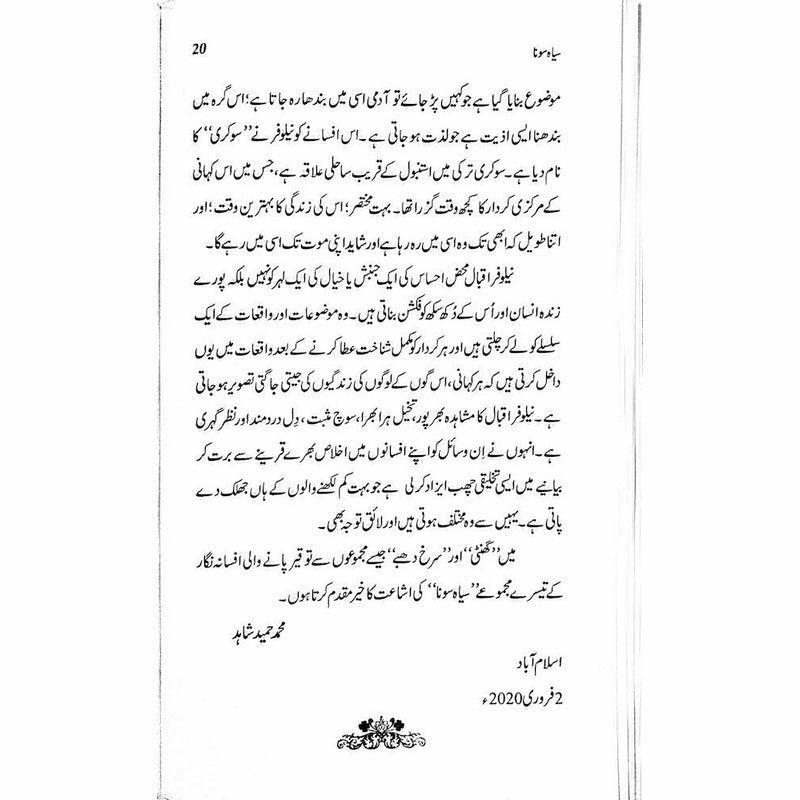 سیاہ سونا 20
موضوع بنایا گیا ہے جو کہیں پڑ جائے تو آدمی اسی میں بندھا رہ جاتا ہے؛ اس گرہ میں
بندھنا ایسی اذیت ہے جو لذت ہو جاتی ہے۔ اس افسانے کو نیلوفر نے ”سوکری“ کا
نام دیا ہے۔ سوکری ترکی میں استنبول کے قریب ساحلی علاقہ ہے، جس میں اس کہانی
کے مرکزی کردار کا کچھ وقت گزرا تھا۔ بہت مختصر؛ اس کی زندگی کا بہترین وقت؛ اور
اتنا طویل کہ ابھی تک وہ اسی میں رہ رہا ہے اور شاید اپنی موت تک اسی میں رہے گا۔
نیلوفر اقبال محض احساس کی ایک جنبش یا خیال کی ایک لہر کو نہیں بلکہ پورے
زندہ انسان اور اُس کے دُکھ سکھ کو فکشن بناتی ہیں۔ وہ موضوعات اور واقعات کے ایک
سلسلے کو لے کر چلتی ہیں اور ہر کردار کو مکمل شناخت عطا کرنے کے بعد واقعات میں یوں
داخل کرتی ہیں کہ ہر کہانی، اس گوں کے لوگوں کی زندگیوں کی جیتی جاگتی تصویر ہو جاتی
ہے۔ نیلوفر اقبال کا مشاہدہ بھرپور، تخیل ہرا بھرا، سوچ مثبت، دِل دردمند اور نظر گہری
ہے۔ انہوں نے اِن وسائل کو اپنے افسانوں میں اخلاص بھرے قرینے سے برت کر
بیانیے میں ایسی تخلیقی چھب ایزاد کر لی ہے جو بہت کم لکھنے والوں کے ہاں جھلک دے
پاتی ہے۔ یہیں سے وہ مختلف ہوتی ہیں اور لائق توجہ بھی۔
میں ”گھنٹی“ اور ”سرخ دھبے“ جیسے مجموعوں سے توقیر پانے والی افسانہ نگار
کے تیسرے مجموعے ”سیاہ سونا“ کی اشاعت کا خیر مقدم کرتا ہوں۔
محمد حمید شاہد
اسلام آباد
2 فروری 2020ء